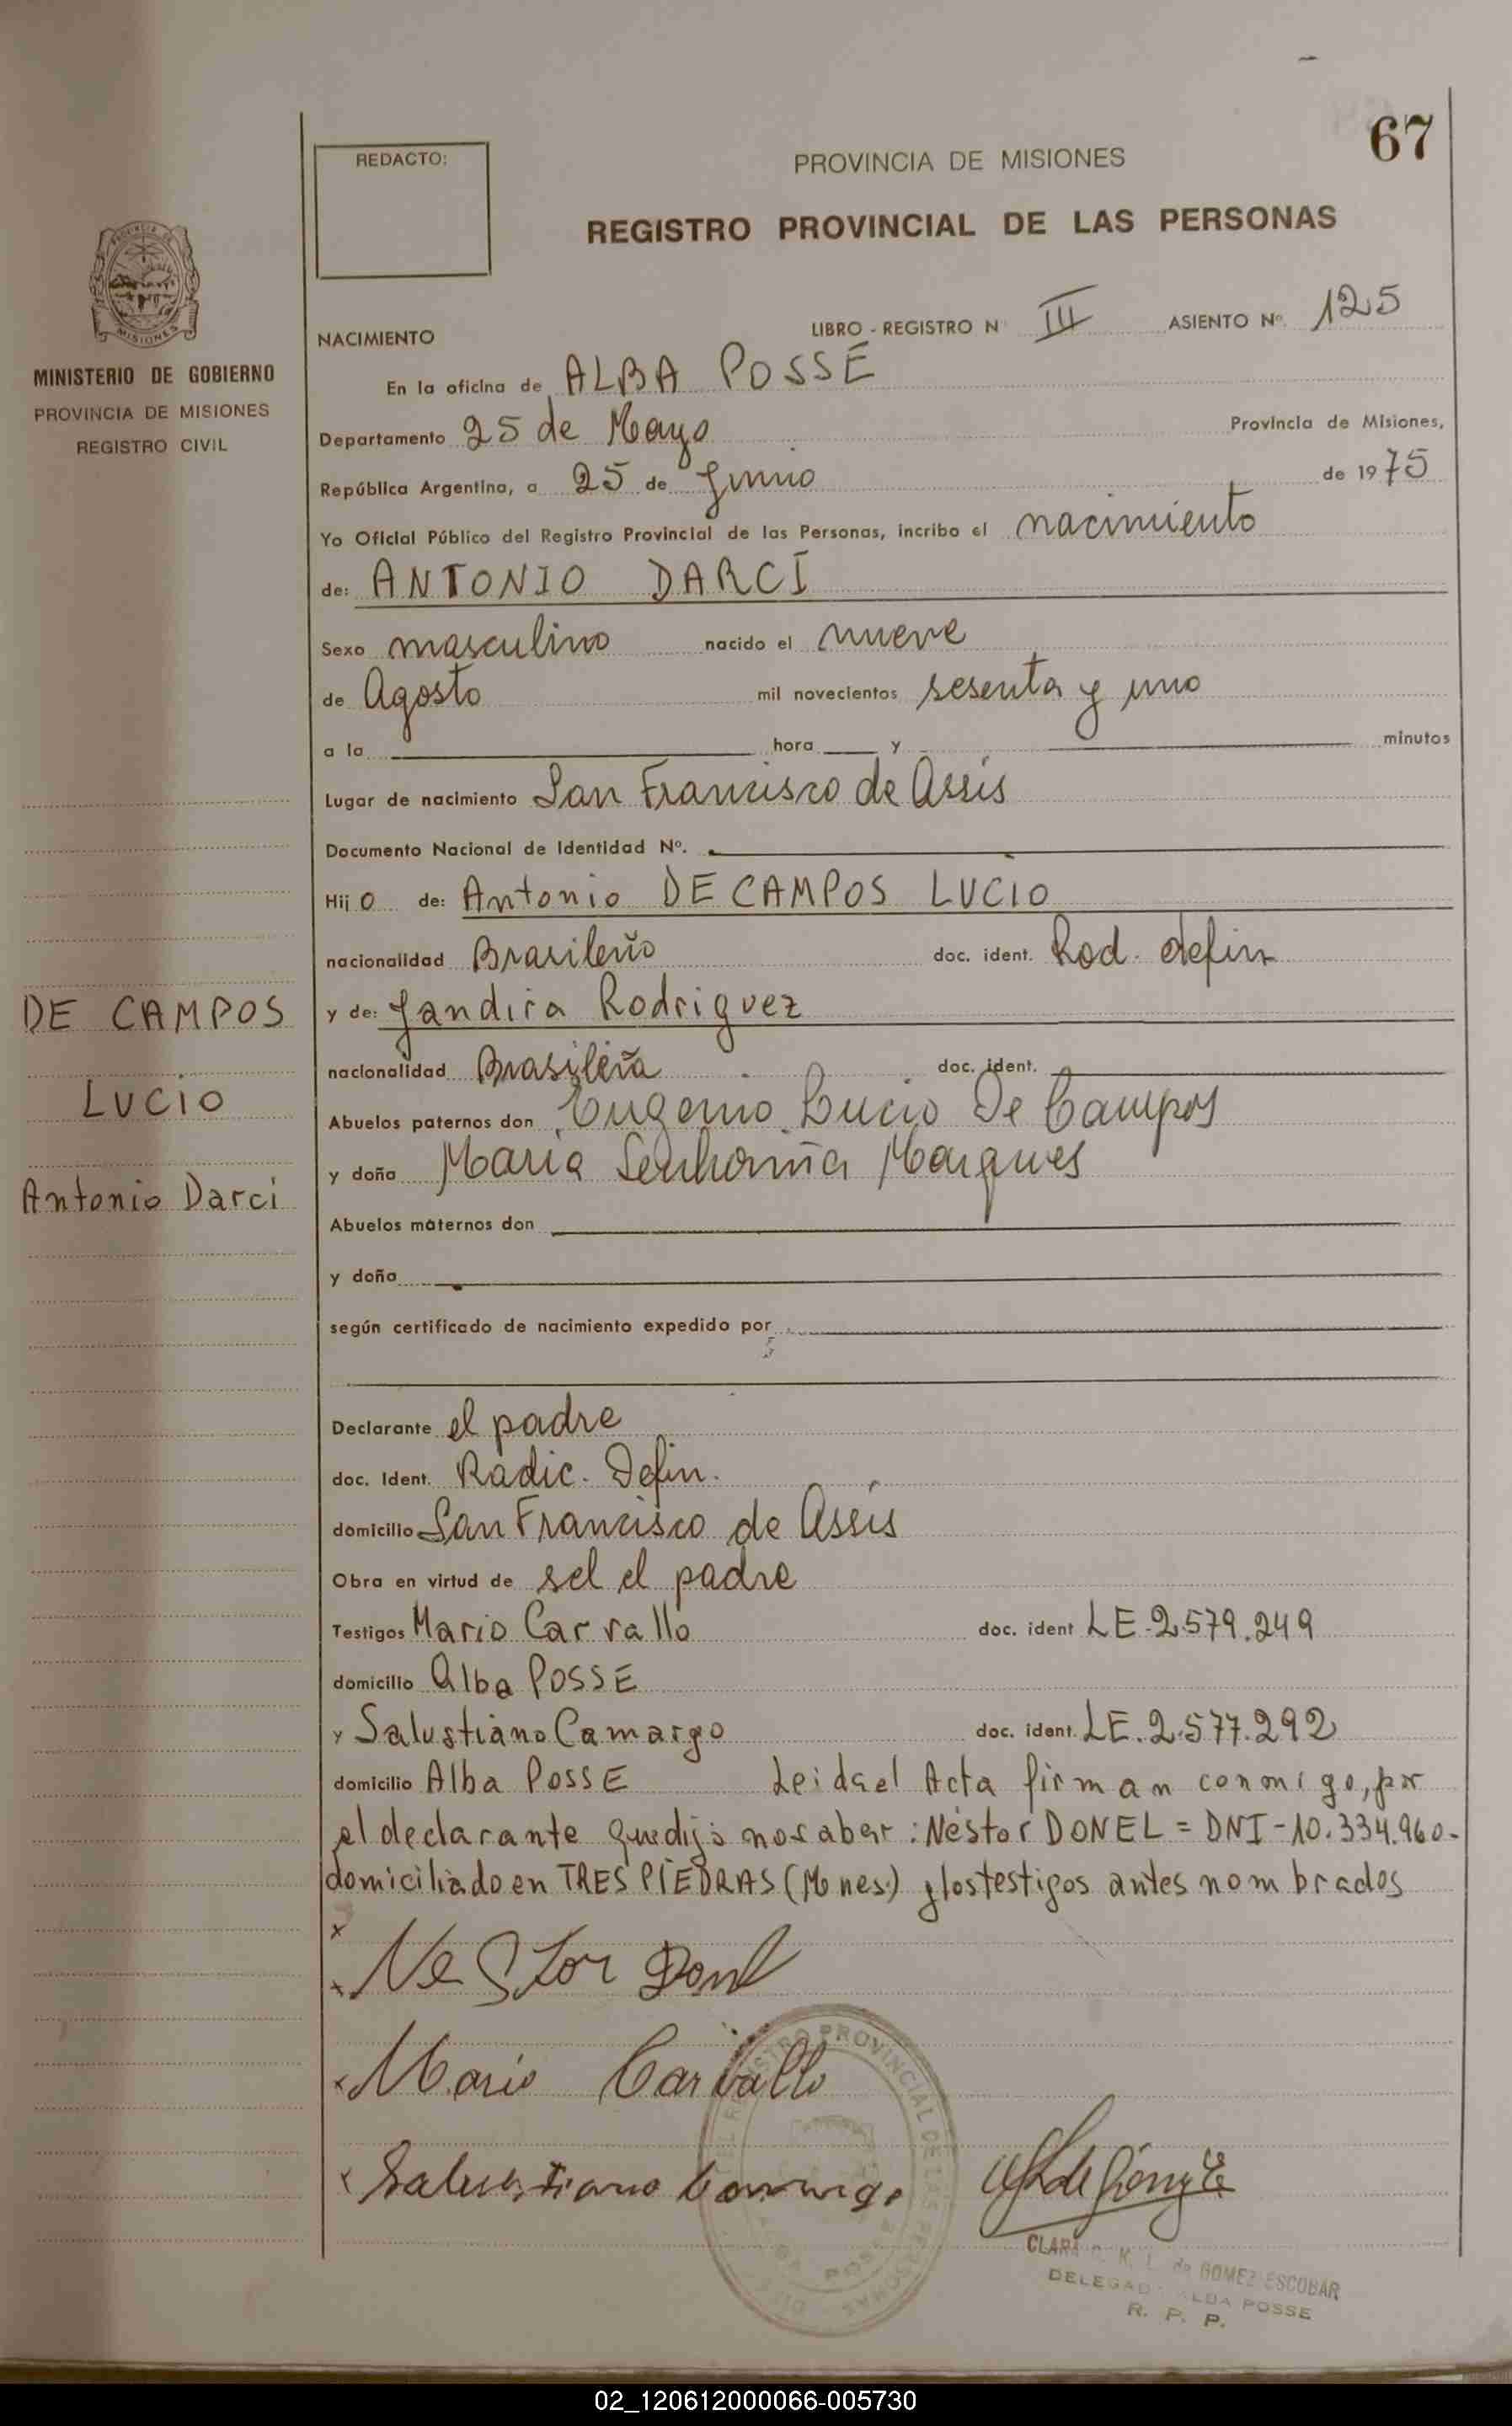 67
REDACTO:
PROVINCIA DE MISIONES
REGISTRO PROVINCIAL DE LAS PERSONAS
MISIONES
MINISTERIO DE GOBIERNO
PROVINCIA DE MISIONES
REGISTRO CIVIL
NACIMIENTO LIBRO - REGISTRO N III ASIENTO Nº. 125
En la oficina de ALBA POSSE
Departamento 25 de Mayo Provincia de Misiones,
República Argentina, a 25 de Junio de 1975
Yo Oficial Público del Registro Provincial de las Personas, incribo el nacimiento
de: ANTONIO DARCI
Sexo masculino nacido el nueve
de Agosto mil novecientos sesenta y uno
a la hora y minutos
Lugar de nacimiento San Francisco de Assis
Documento Nacional de Identidad Nº.
Hijo de: Antonio DE CAMPOS LUCIO
nacionalidad Brasileño doc. ident. Rad. defin
DE CAMPOS
y de: Jandira Rodriguez
nacionalidad Brasileña doc. ident.
LUCIO
Abuelos paternos don Eugenio Lucio De Campos
y doña Maria Marques
Antonio Darci
Abuelos maternos don
y doña
según certificado de nacimiento expedido por
Declarante el padre
doc. Ident. Radic. Defin.
domicilio San Francisco de Assis
Obra en virtud de sel el padre
Testigos Mario Carvallo doc. ident LE-2.579.249
domicilio Alba POSSE
y Salustiano Camargo doc. ident. LE.2.577.292
domicilio Alba POSSE Leida el Acta firman conmigo, por
el declarante que dijo no saber: Néstor DONEL = DNI-10.334.960-
domiciliado en TRES PIEDRAS (Mnes.) y los testigos antes nombrados
x
x Nestor Donel
x Mario Carvallo
x Salustiano Camargo
REGISTRO PROVINCIAL DE LAS PERSONAS
ALBA POSSE
CLARA de GOMEZ ESCOBAR
DELEGADA ALBA POSSE
R. P. P.
02_120612000066-005730